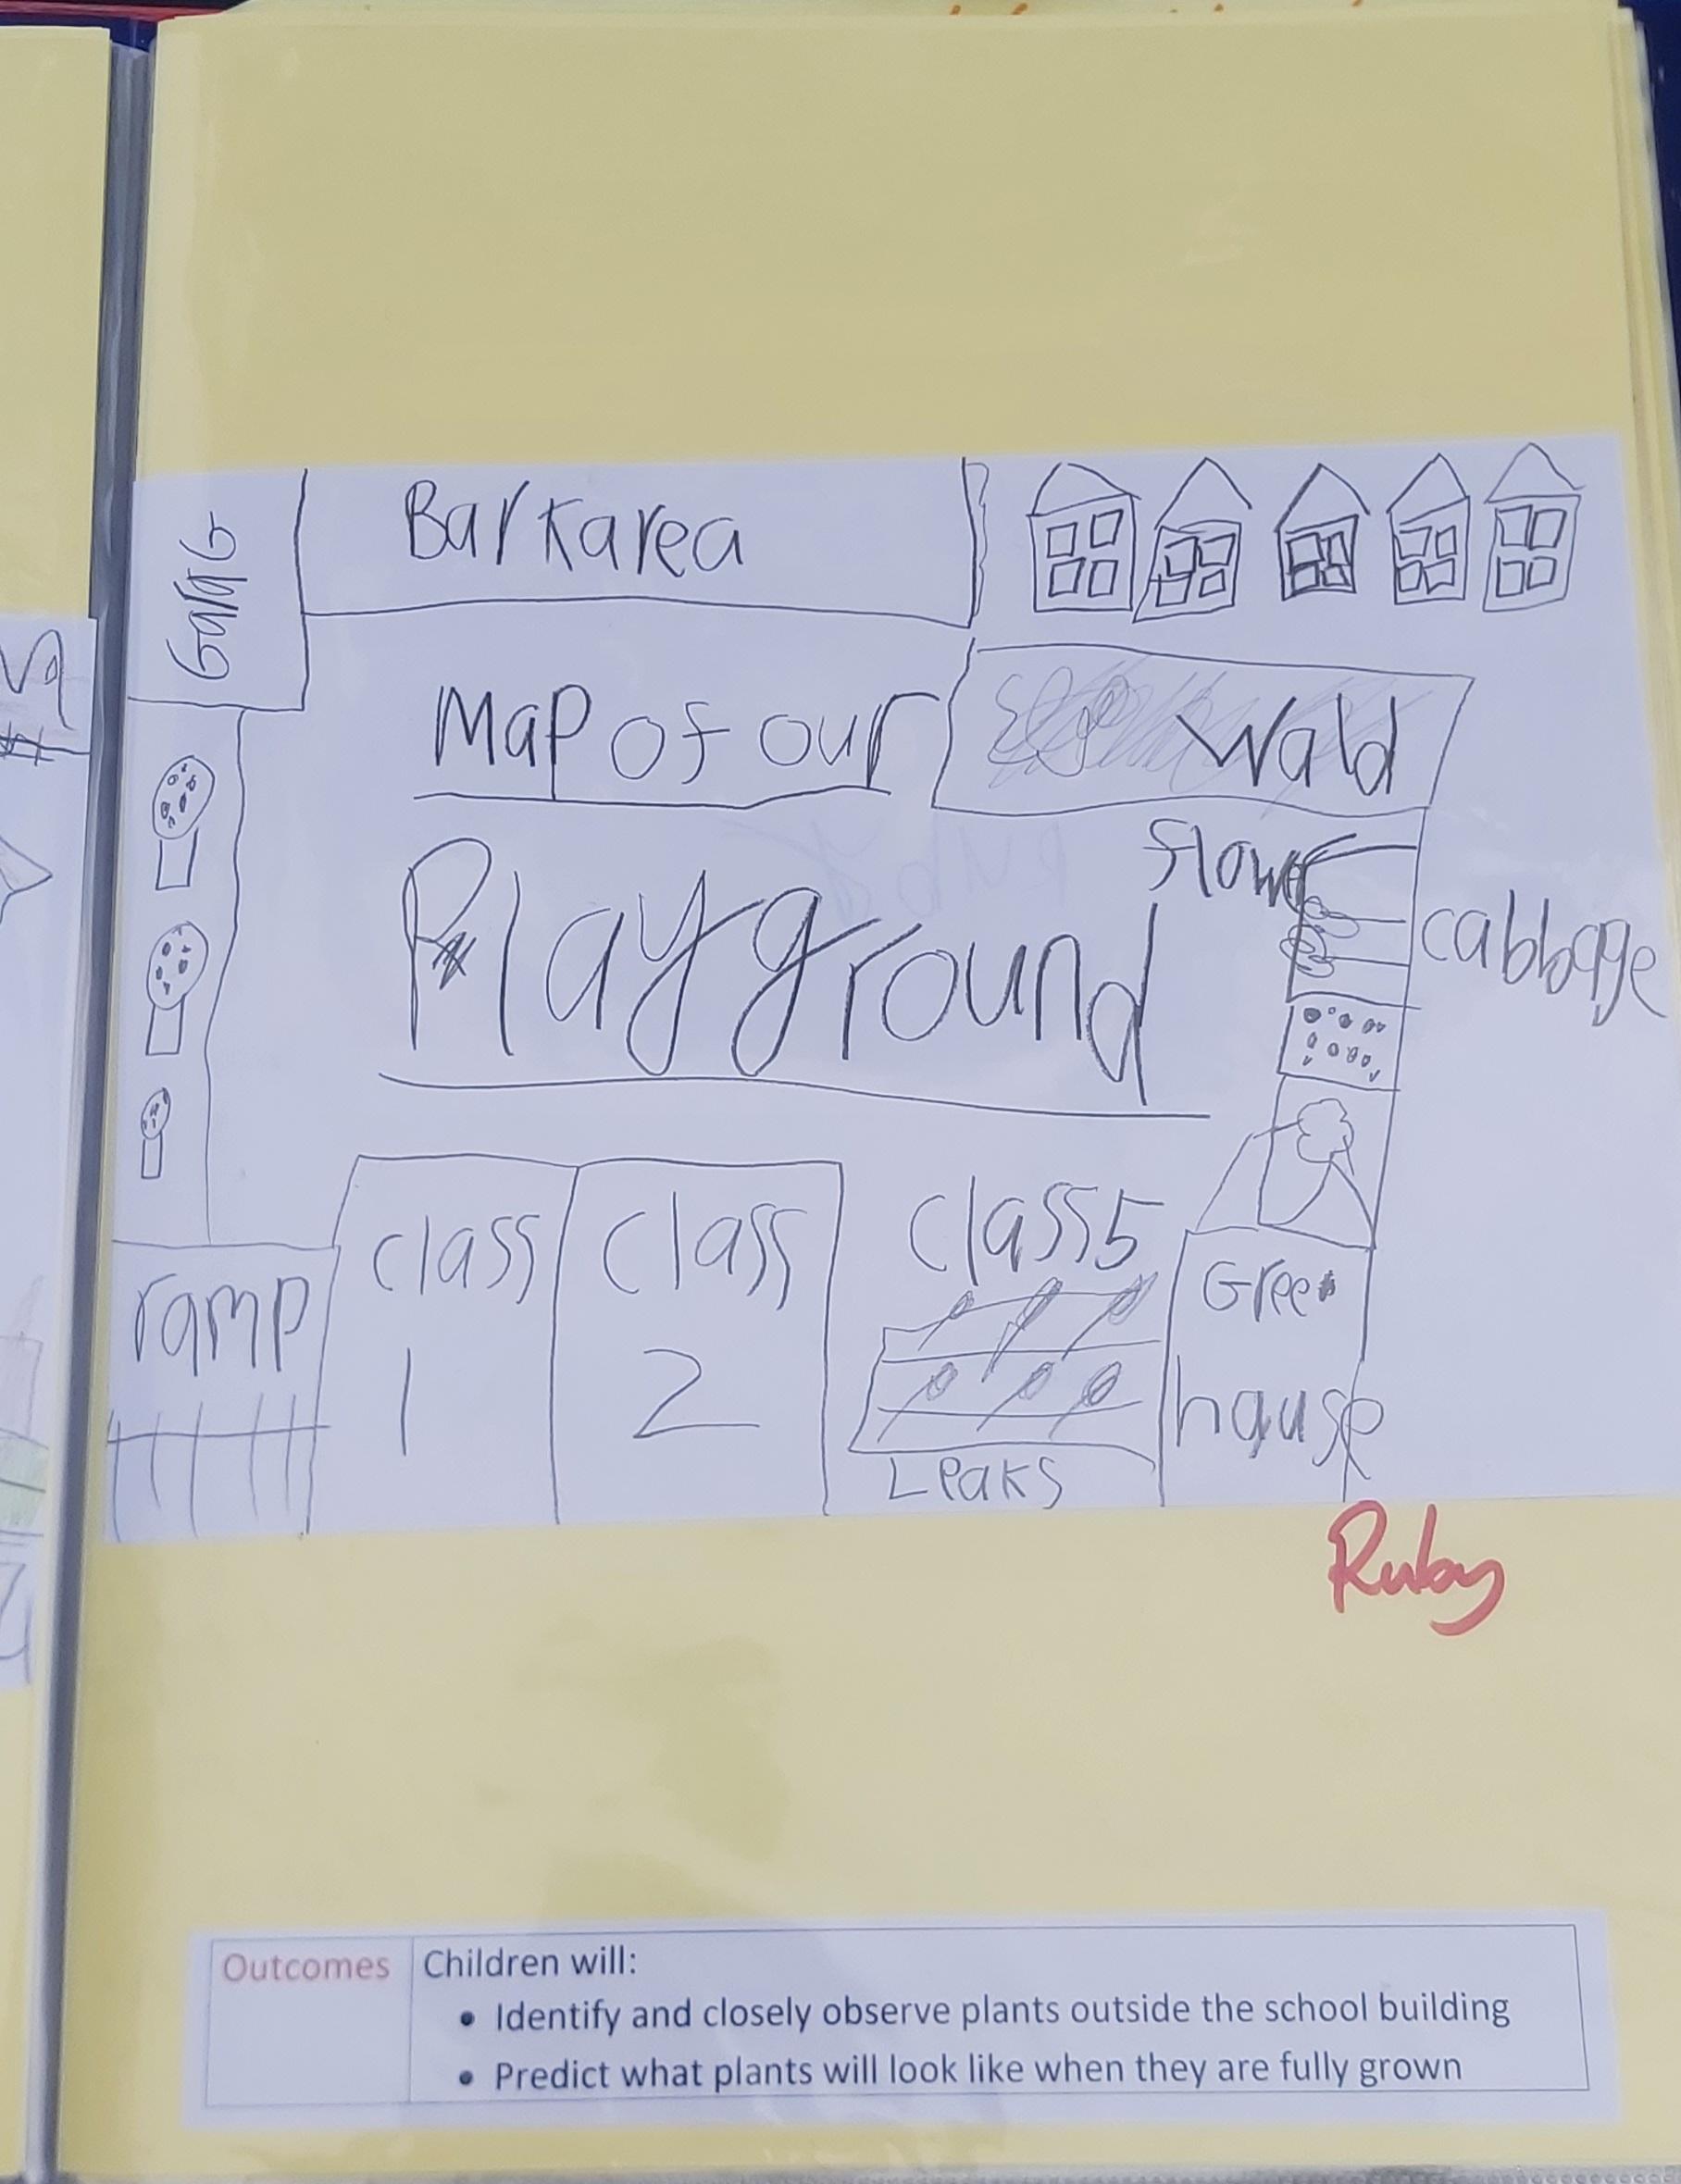 Barkarea
Map of our
Wald
Playground
flower
cabbage
class
1
class
2
class5
Leaks
ramp
Green
hause
Ruby
Outcomes
Children will:
• Identify and closely observe plants outside the school building
• Predict what plants will look like when they are fully grown